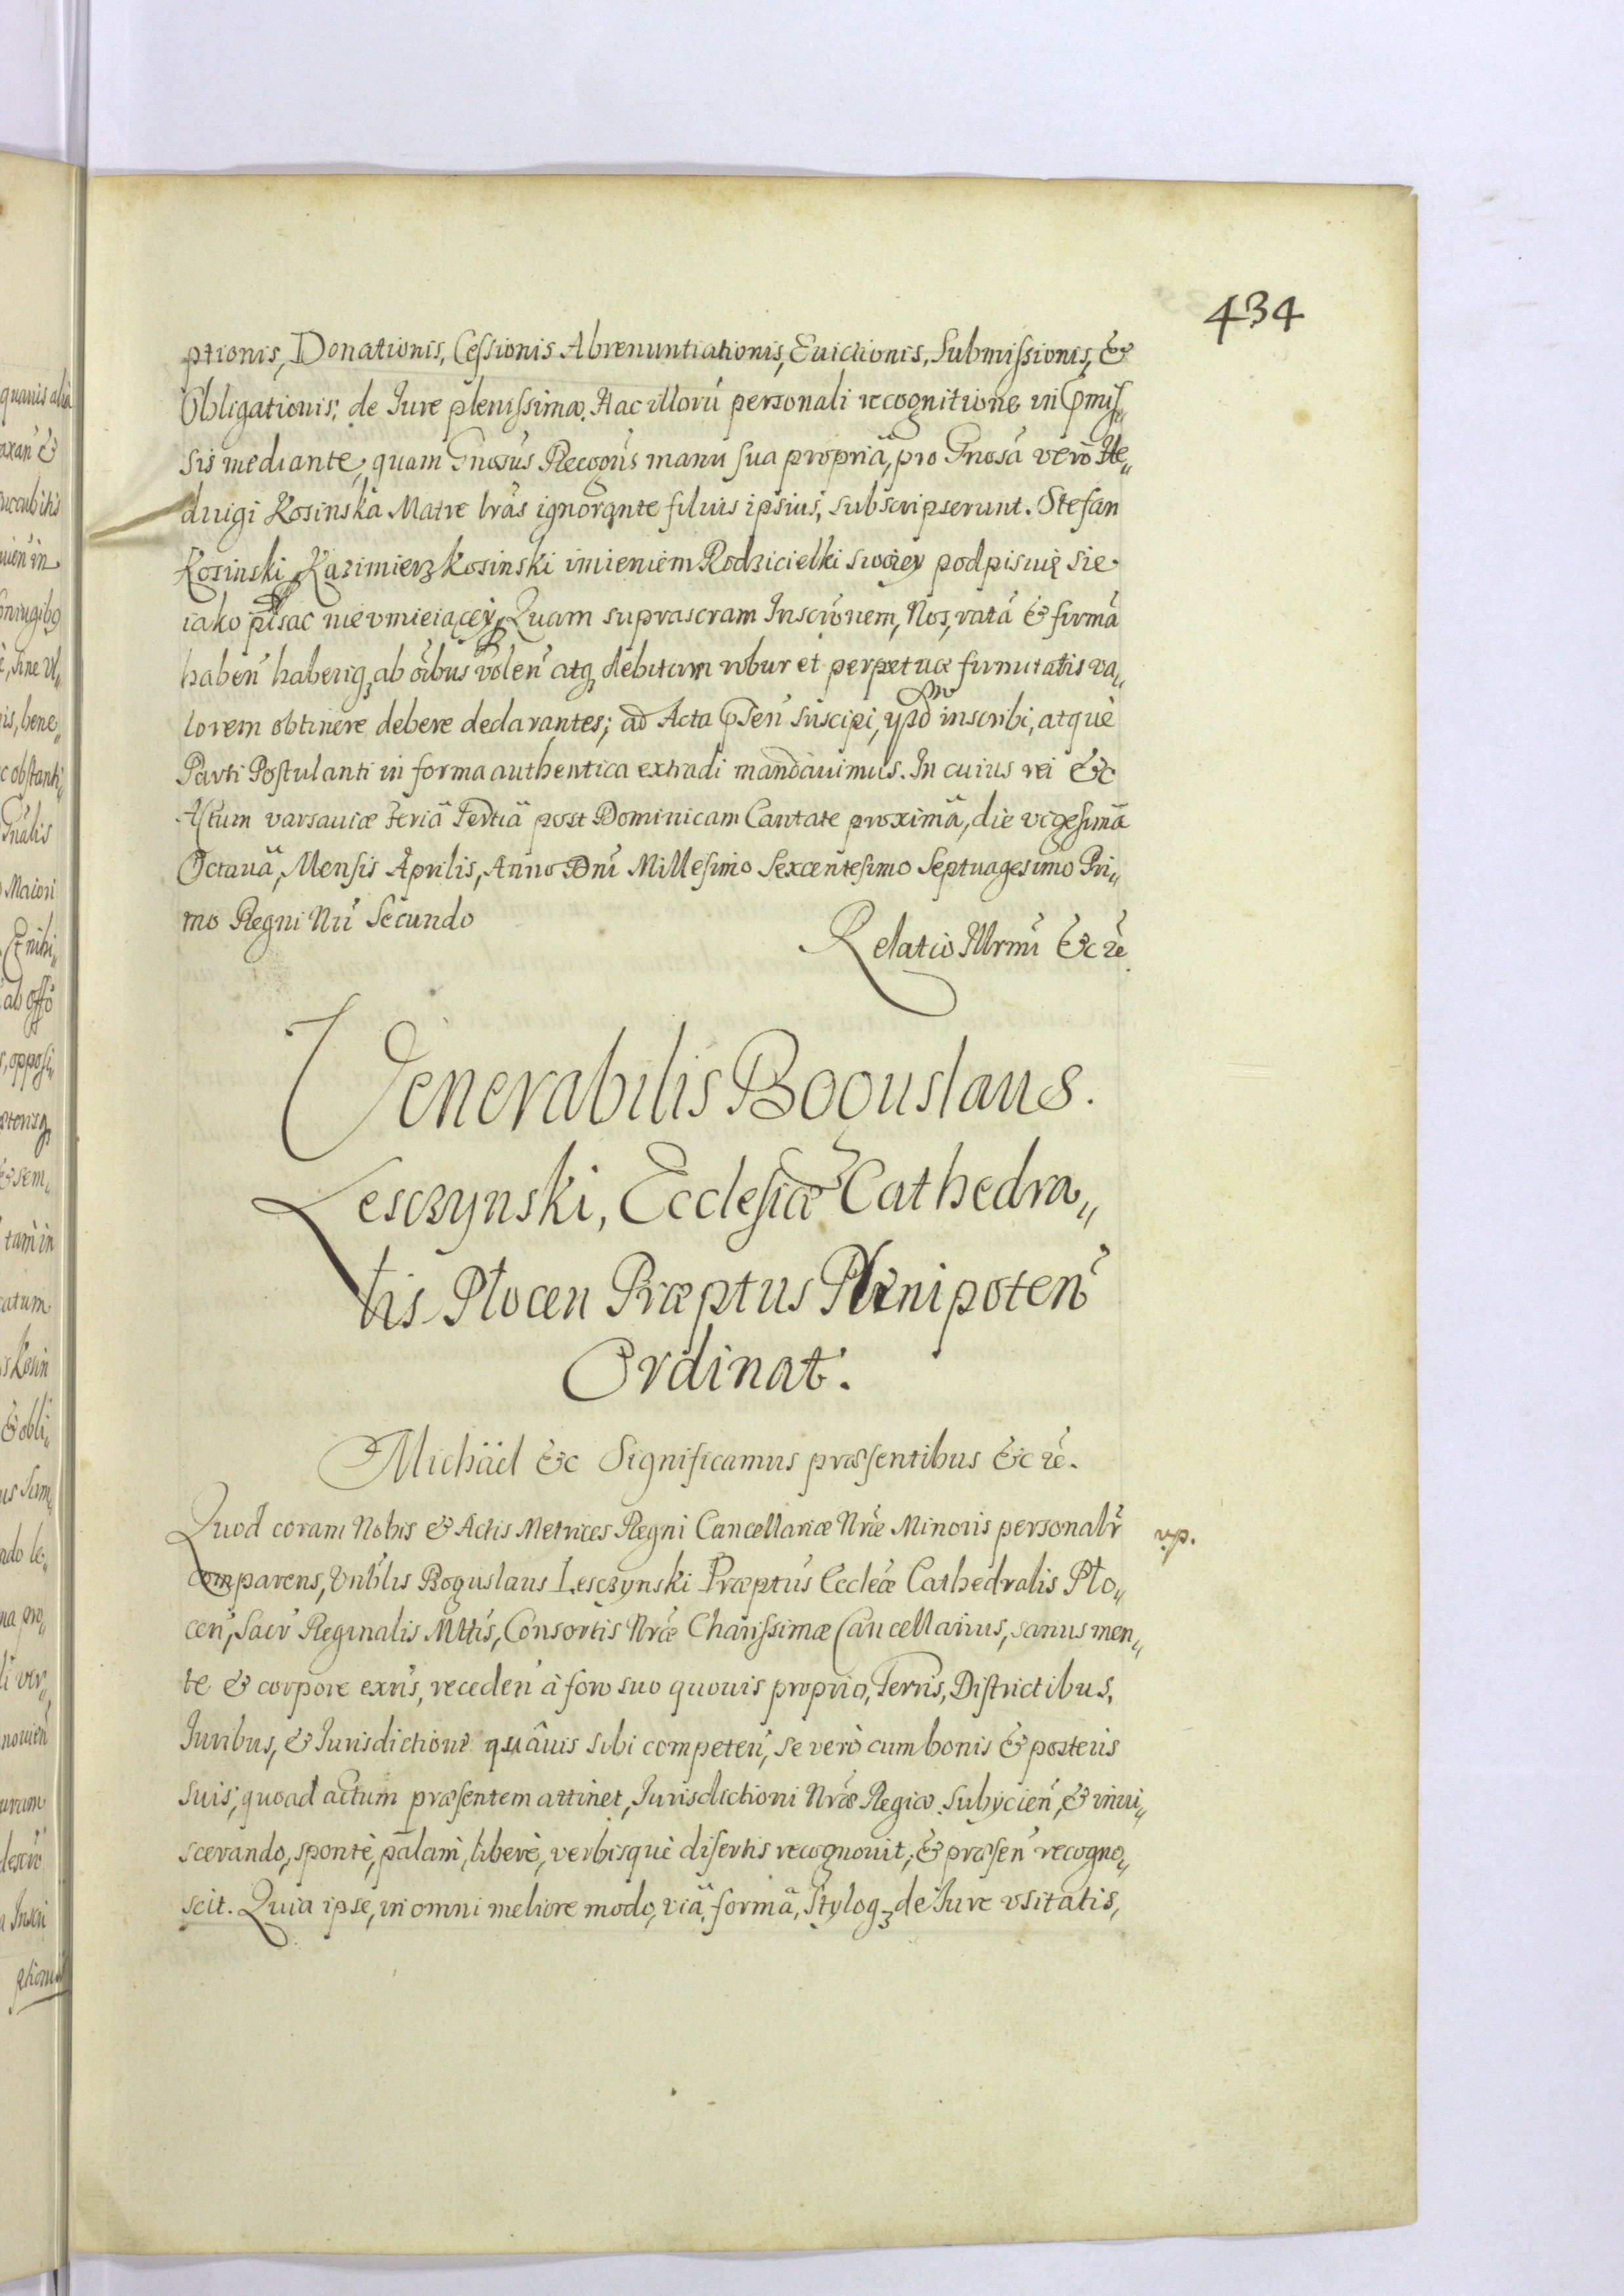 434
ptionis, Donationis, Cessionis Abrenuntiationis, Euictionis, Submissionis, &
Obligationis, de Iure plenissimæ. Hac illorū personali recognitione in p̄mis„
sis mediante, quam Gnosus Recogn̄s manu sua propriâ, pro Gnosa verò He„
duigi Kosinska Matre lr̄as ignorante filius ipsius, subscripserunt. Stefan
Kosinski, Kazimierz Kosinski imieniem Rodzicielki swoiey podpisuię sie
iako pisac nie vmieiącey, Quam suprascram Inscr̄onem, Nos, ratā & firmā
haben̄ haberiq, ab oībus volen̄ atq, debitum robur et perpetuæ firmitatis va„
lorem obtinere debere declarantes; ad Acta p̄sen̄ suscipi, ijsd̄ inscribi, atquè
Parti Postulanti in forma authentica extradi mandauimus. In cuius rei &c
Actum varsauiæ feriâ Tertiâ post Dominicam Cantate proximâ, die vigesimâ
Octauâ, Mensis Aprilis, Anno Dn̄i Millesimo Sexcentesimo Septuagesimo Pri„
mo Regni Nr̄i Secundo
Relatio Illrmi &c rē
Venerabilis Boguslaus.
Lesczynski, Ecclesiæ Cathedra„
lis Plocen Præptus Plenipoten̄
Ordinat.
Michäel &c Significamus præsentibus &c rē.
Quod coram Nobis & Actis Metrices Regni Cancellariæ Nr̄æ Minoris personalr̄
r.p.
comparens, Vnblis Boguslaus Lesczynski Præptus Eccleæ Cathedralis Plo„
cen̄, Sacr̄ Reginalis Mttis, Consortis Nr̄æ Charissimæ Cancellarius, sanus men„
te & corpore exn̄s, receden̄ à foro suo quouis proprio, Terris, Districtibus,
Iuribus, & Iurisdictione quâuis sibi competen̄, se verò cum bonis & posteris
suis, quoad actum præsentem attinet, Iurisdictioni Nr̄æ Regiæ subijcien̄, & inui„
scerando, spontè, palàm, liberè, verbisquè disertis recognouit, & præsen̄ recogno„
scit. Quia ipse, in omni meliore modo, viâ, formâ, styloq, de Iure vsitatis,